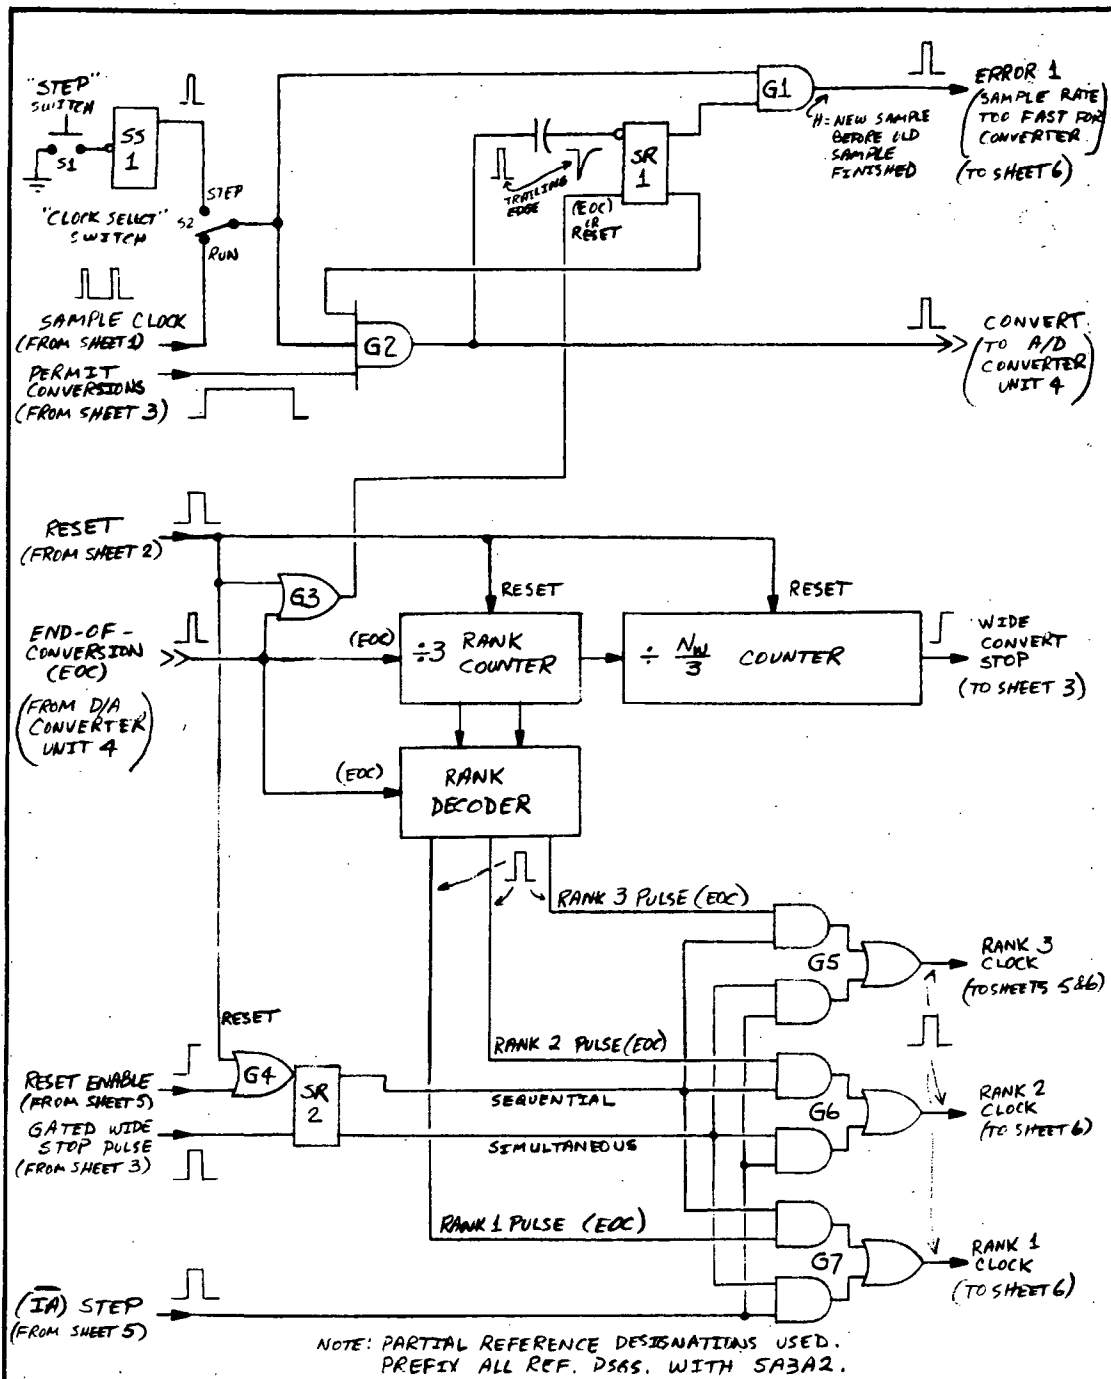 "STEP"
SWITCH
S1
SS
1
STEP
"CLOCK SELECT"
SWITCH
S2
RUN
SAMPLE CLOCK
(FROM SHEET 1)
PERMIT
CONVERSIONS
(FROM SHEET 3)
G2
TRAILING
EDGE
(EOC)
OR
RESET
SR
1
G1
H = NEW SAMPLE
BEFORE OLD
SAMPLE
FINISHED
ERROR 1
(SAMPLE RATE
TOO FAST FOR
CONVERTER)
(TO SHEET 6)
CONVERT
(TO A/D
CONVERTER
UNIT 4)
RESET
(FROM SHEET 2)
G3
END-OF-
CONVERSION
(EOC)
(FROM D/A
CONVERTER
UNIT 4)
(EOC)
RESET
÷3 RANK
COUNTER
RESET
÷ NW/3 COUNTER
WIDE
CONVERT
STOP
(TO SHEET 3)
(EOC)
RANK
DECODER
RANK 3 PULSE (EOC)
G5
RANK 3
CLOCK
(TO SHEETS 5&6)
RESET
RANK 2 PULSE (EOC)
RESET ENABLE
(FROM SHEET 5)
G4
SR
2
SEQUENTIAL
G6
RANK 2
CLOCK
(TO SHEET 6)
GATED WIDE
STOP PULSE
(FROM SHEET 3)
SIMULTANEOUS
RANK 1 PULSE (EOC)
G7
RANK 1
CLOCK
(TO SHEET 6)
(I̅A̅) STEP
(FROM SHEET 5)
NOTE: PARTIAL REFERENCE DESIGNATIONS USED.
PREFIX ALL REF. DSGS. WITH 5A3A2.